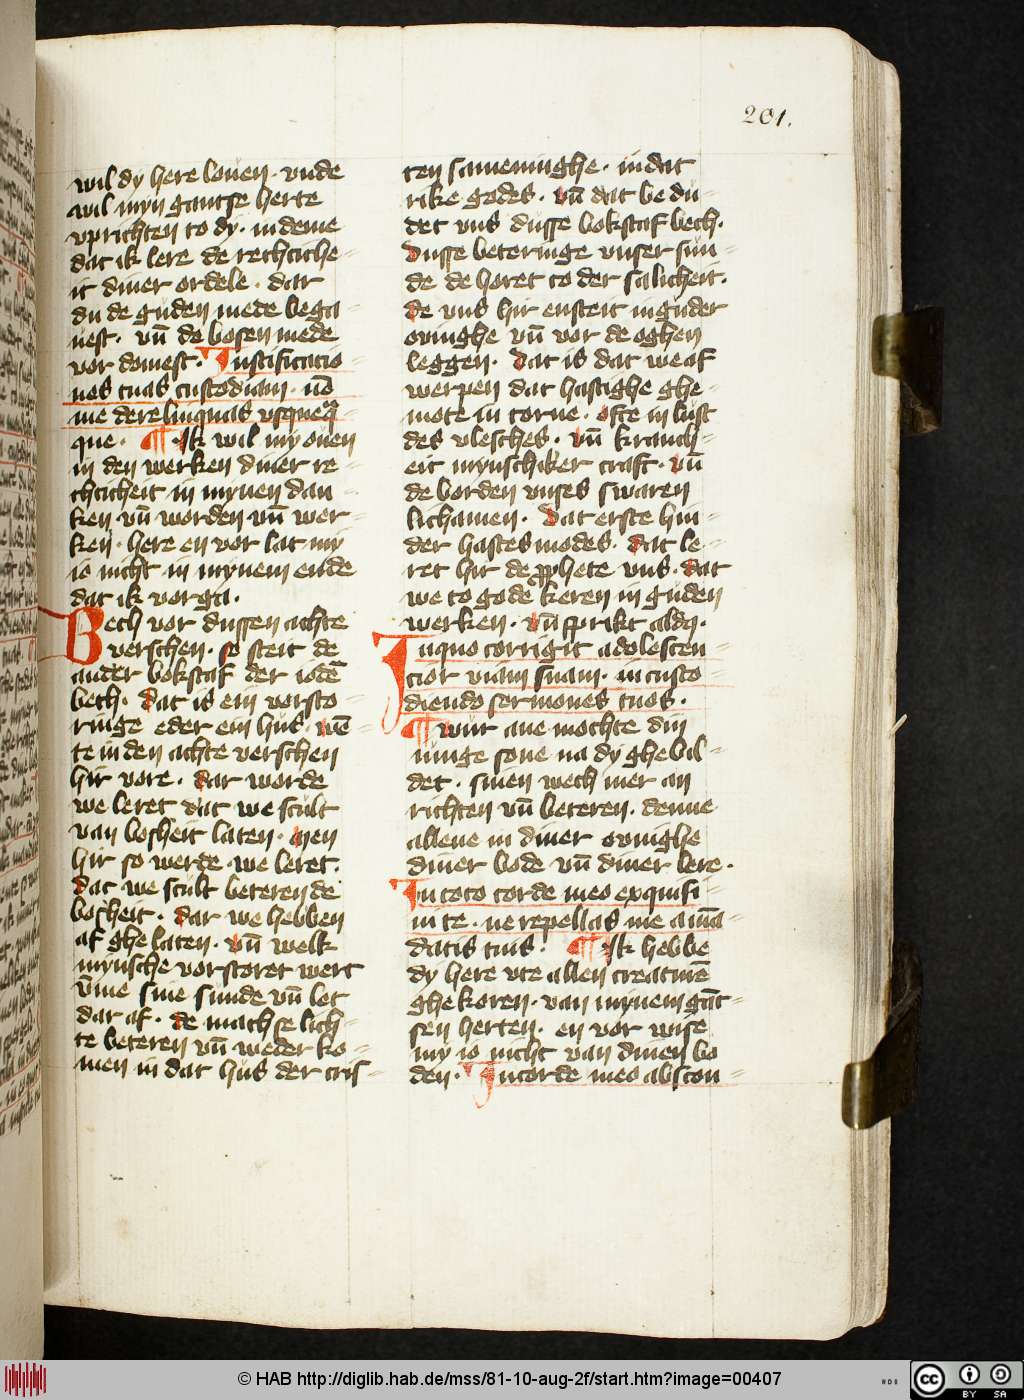 201.
wil dy here louen · vnde
wil myn gantse herte
vprichten to dy · in deme
dat ik lere de rechtiche=
it diner ordele · dar
du de guden mede bega=
uest · vn̄ de bosen mede
vor domest · Iustificatio
nes tuas custodiam · nō
me derelinquas vsqueq̄
que · ¶ Ik wil my ouen
in den werken diner re=
chticheit in mynen dan=
ken vn̄ worden vn̄ wer=
ken · here en vor lat my
io nicht in mynem ende
dat ik vorga ·
Bech vor dussen achte
verschen · so steit de
ander bokstaf der iodē
bech · dat is ein vorsto
ringe eder ein hus · wē
te in den achte verschen
hir vore · dar worde
we leret dat we scult
van bosheit laten · men
hir so werde we leret ·
dat we scult beteren de
bosheit · dar we hebben
af ghe laten · vn̄ welk
mynsche vorstoret wert
v̄me sine sunde vn̄ let
dar af · de mach se lich=
te beteren vn̄ weder ko=
men in dat hus der cris=
ten sameninghe · in dat
rike godes · vn̄ dat be du=
det vns dusse bokstaf bech ·
dusse beteringe vnser sun=
de de horet to der salicheit ·
de vns hir ensteit in guder
ouinghe vn̄ vor de oghen
leggen · dat is dat we af
werpen dat hastighe ghe=
mote in torne · ofte in lust
des vlesches · vn̄ kranck=
eit mynschiker craft · vn̄
de borden vnses swaren
lichamen · dat erste hin=
der hastes modes · dat le=
ret hir de ꝓphete vns · dat
we to gode keren in guden
werken · vn̄ sprikt aldꝰ ·
In quo corrigit adolescen=
cior viam suam · in custo=
diendo sermones tuos ·
¶ wur ane mochte din
iunge sone na dy ghebil=
det · sinen wech mer an
richten vn̄ beteren · denne
allene in diner ouinghe
diner bode vn̄ diner lere ·
In toto corde meo exquisi
ui te · ne repellas me a mā=
datis tuis · ¶ Ik hebbe
dy here vte allen creaturē
ghe koren · van mynem gāt=
sen herten · en vor wise
my io nicht van dinen bo
den · In corde meo abscon=
© HAB http://diglib.hab.de/mss/81-10-aug-2f/start.htm?image=00407
cc
BY SA